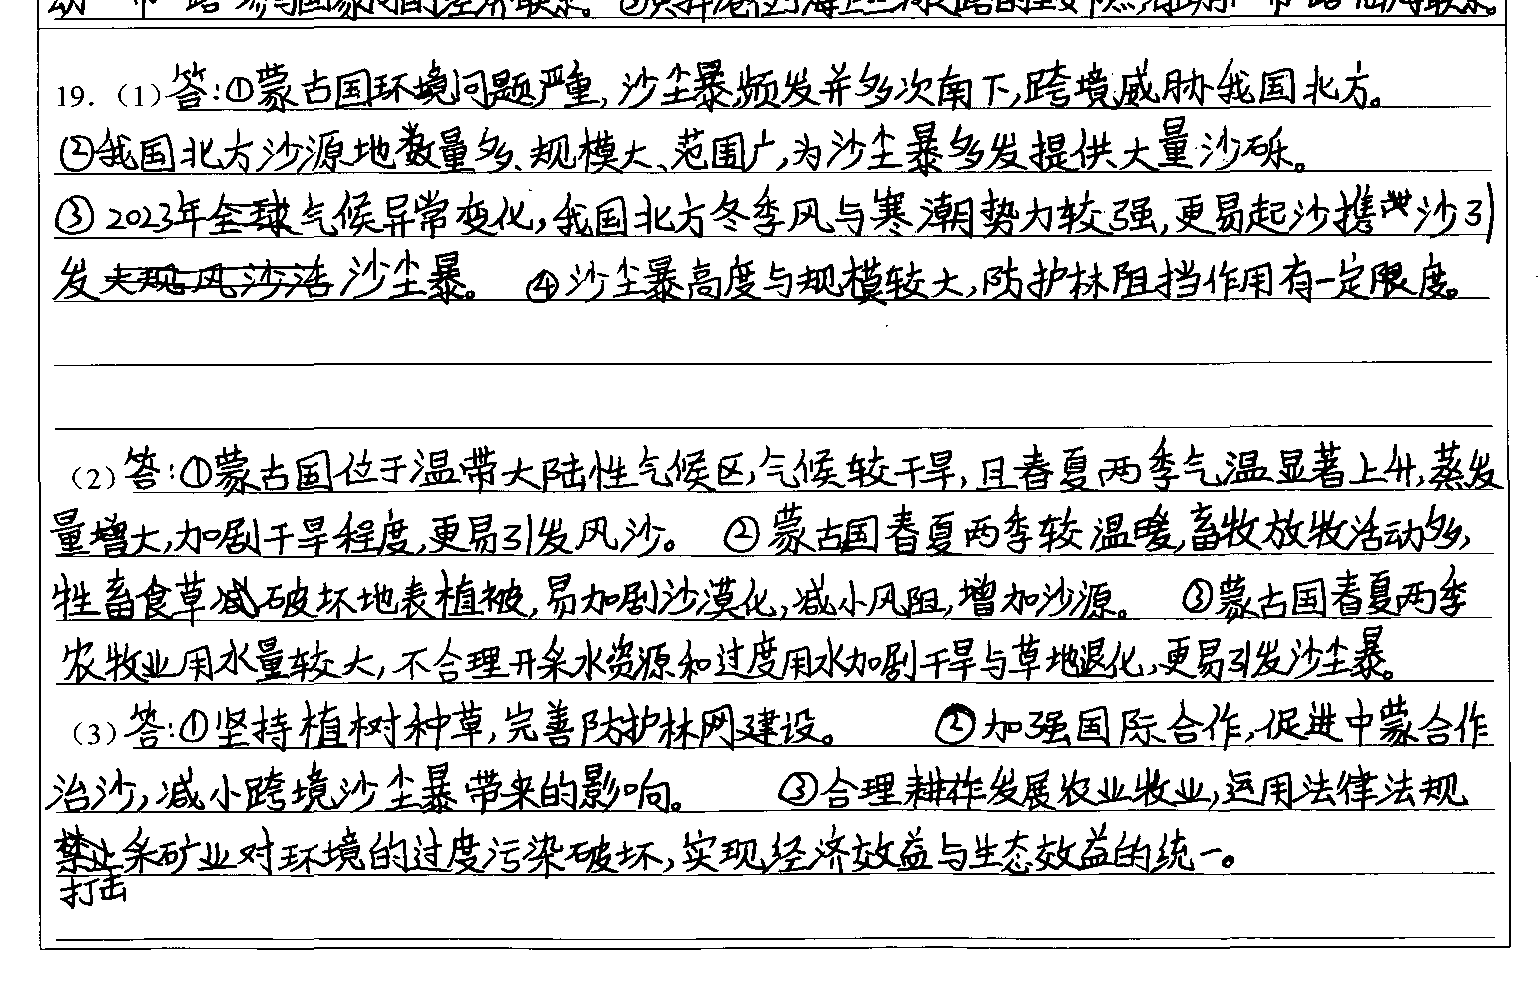 19.（1）答:①蒙古国环境问题严重,沙尘暴频发并多次南下,跨境威胁我国北方。
②我国北方沙源地数量多、规模大、范围广,为沙尘暴多发提供大量沙砾。
③2023年全球气候异常变化,我国北方冬季风与寒潮势力较强,更易起沙携沙引
发沙尘暴。 ④沙尘暴高度与规模较大,防护林阻挡作用有一定限度。
（2）答:①蒙古国位于温带大陆性气候区,气候较干旱,且春夏两季气温显著上升,蒸发
量增大,加剧干旱程度,更易引发风沙。 ②蒙古国春夏两季较温暖,畜牧放牧活动多,
牲畜食草破坏地表植被,易加剧沙漠化,减小风阻,增加沙源。 ③蒙古国春夏两季
农牧业用水量较大,不合理开采水资源和过度用水加剧干旱与草地退化,更易引发沙尘暴。
（3）答:①坚持植树种草,完善防护林网建设。 ②加强国际合作,促进中蒙合作
治沙,减小跨境沙尘暴带来的影响。 ③合理发展农业牧业,运用法律法规
采矿业对环境的过度污染破坏,实现经济效益与生态效益的统一。
打击